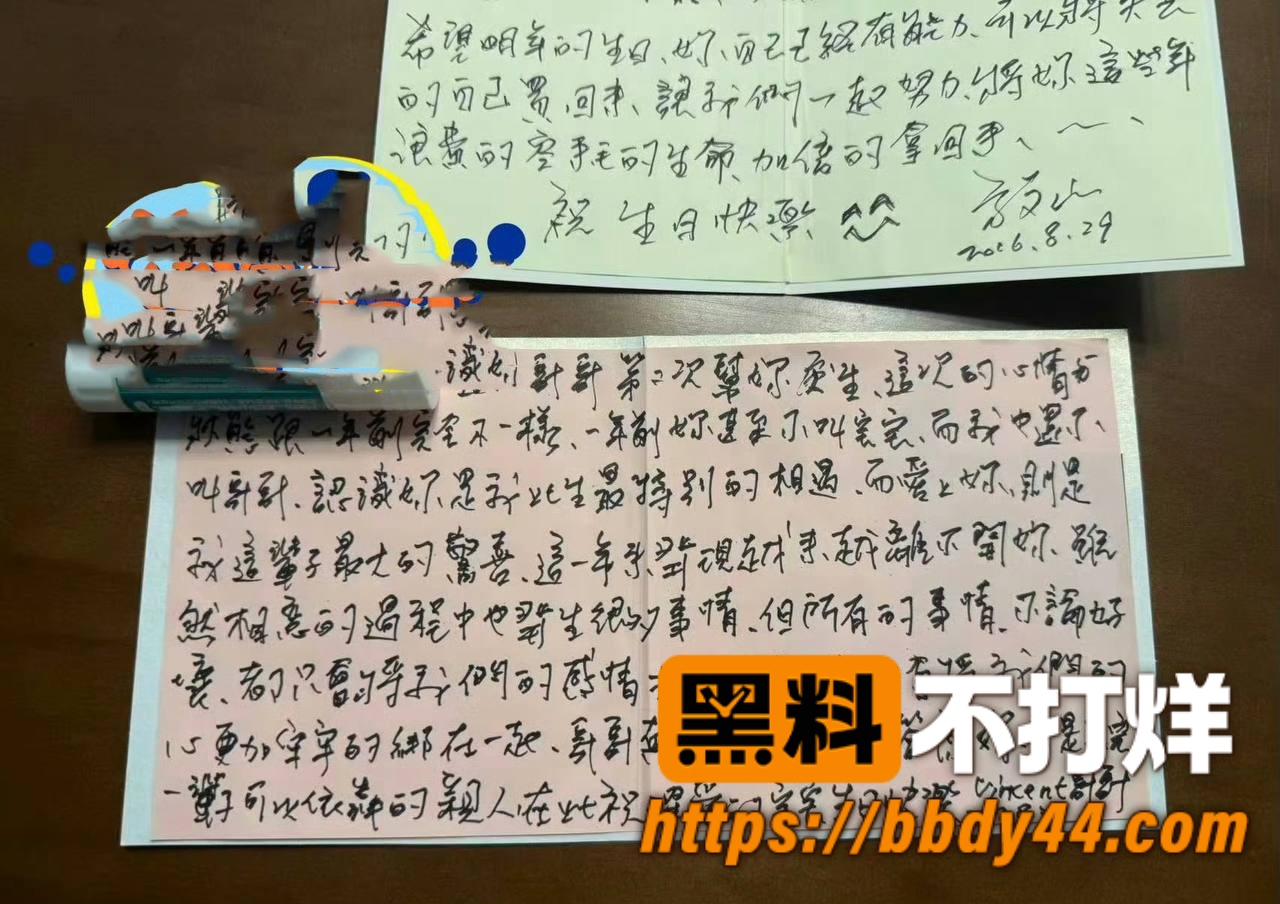 希望明年的生日、妳自己已經有能力、可以將失去
的自己買回來、讓我們一起努力、將妳這些年
浪費的寒毛的生命、加倍的拿回來、
祝 生日快樂 ^^
2026.8.29
識妳哥哥第二次幫妳慶生、這次的心情與
狀態跟一年前完全不一樣、一年前妳甚至不叫宝宝、而我也還不、
叫哥哥、認識妳是我此生最特別的相遇、而愛上妳、則是
我這輩子最大的驚喜、這一年來發現越來越離不開妳、雖
然相戀的過程中也發生很多事情、但所有的事情、不論好
壞、都只會將我們的感情 我們的
心更加牢牢的綁在一起、哥哥 是宝
一輩子可以依靠的親人在此祝 宝宝生日 Vincent哥哥
黑料不打烊
https://bbdy44.com